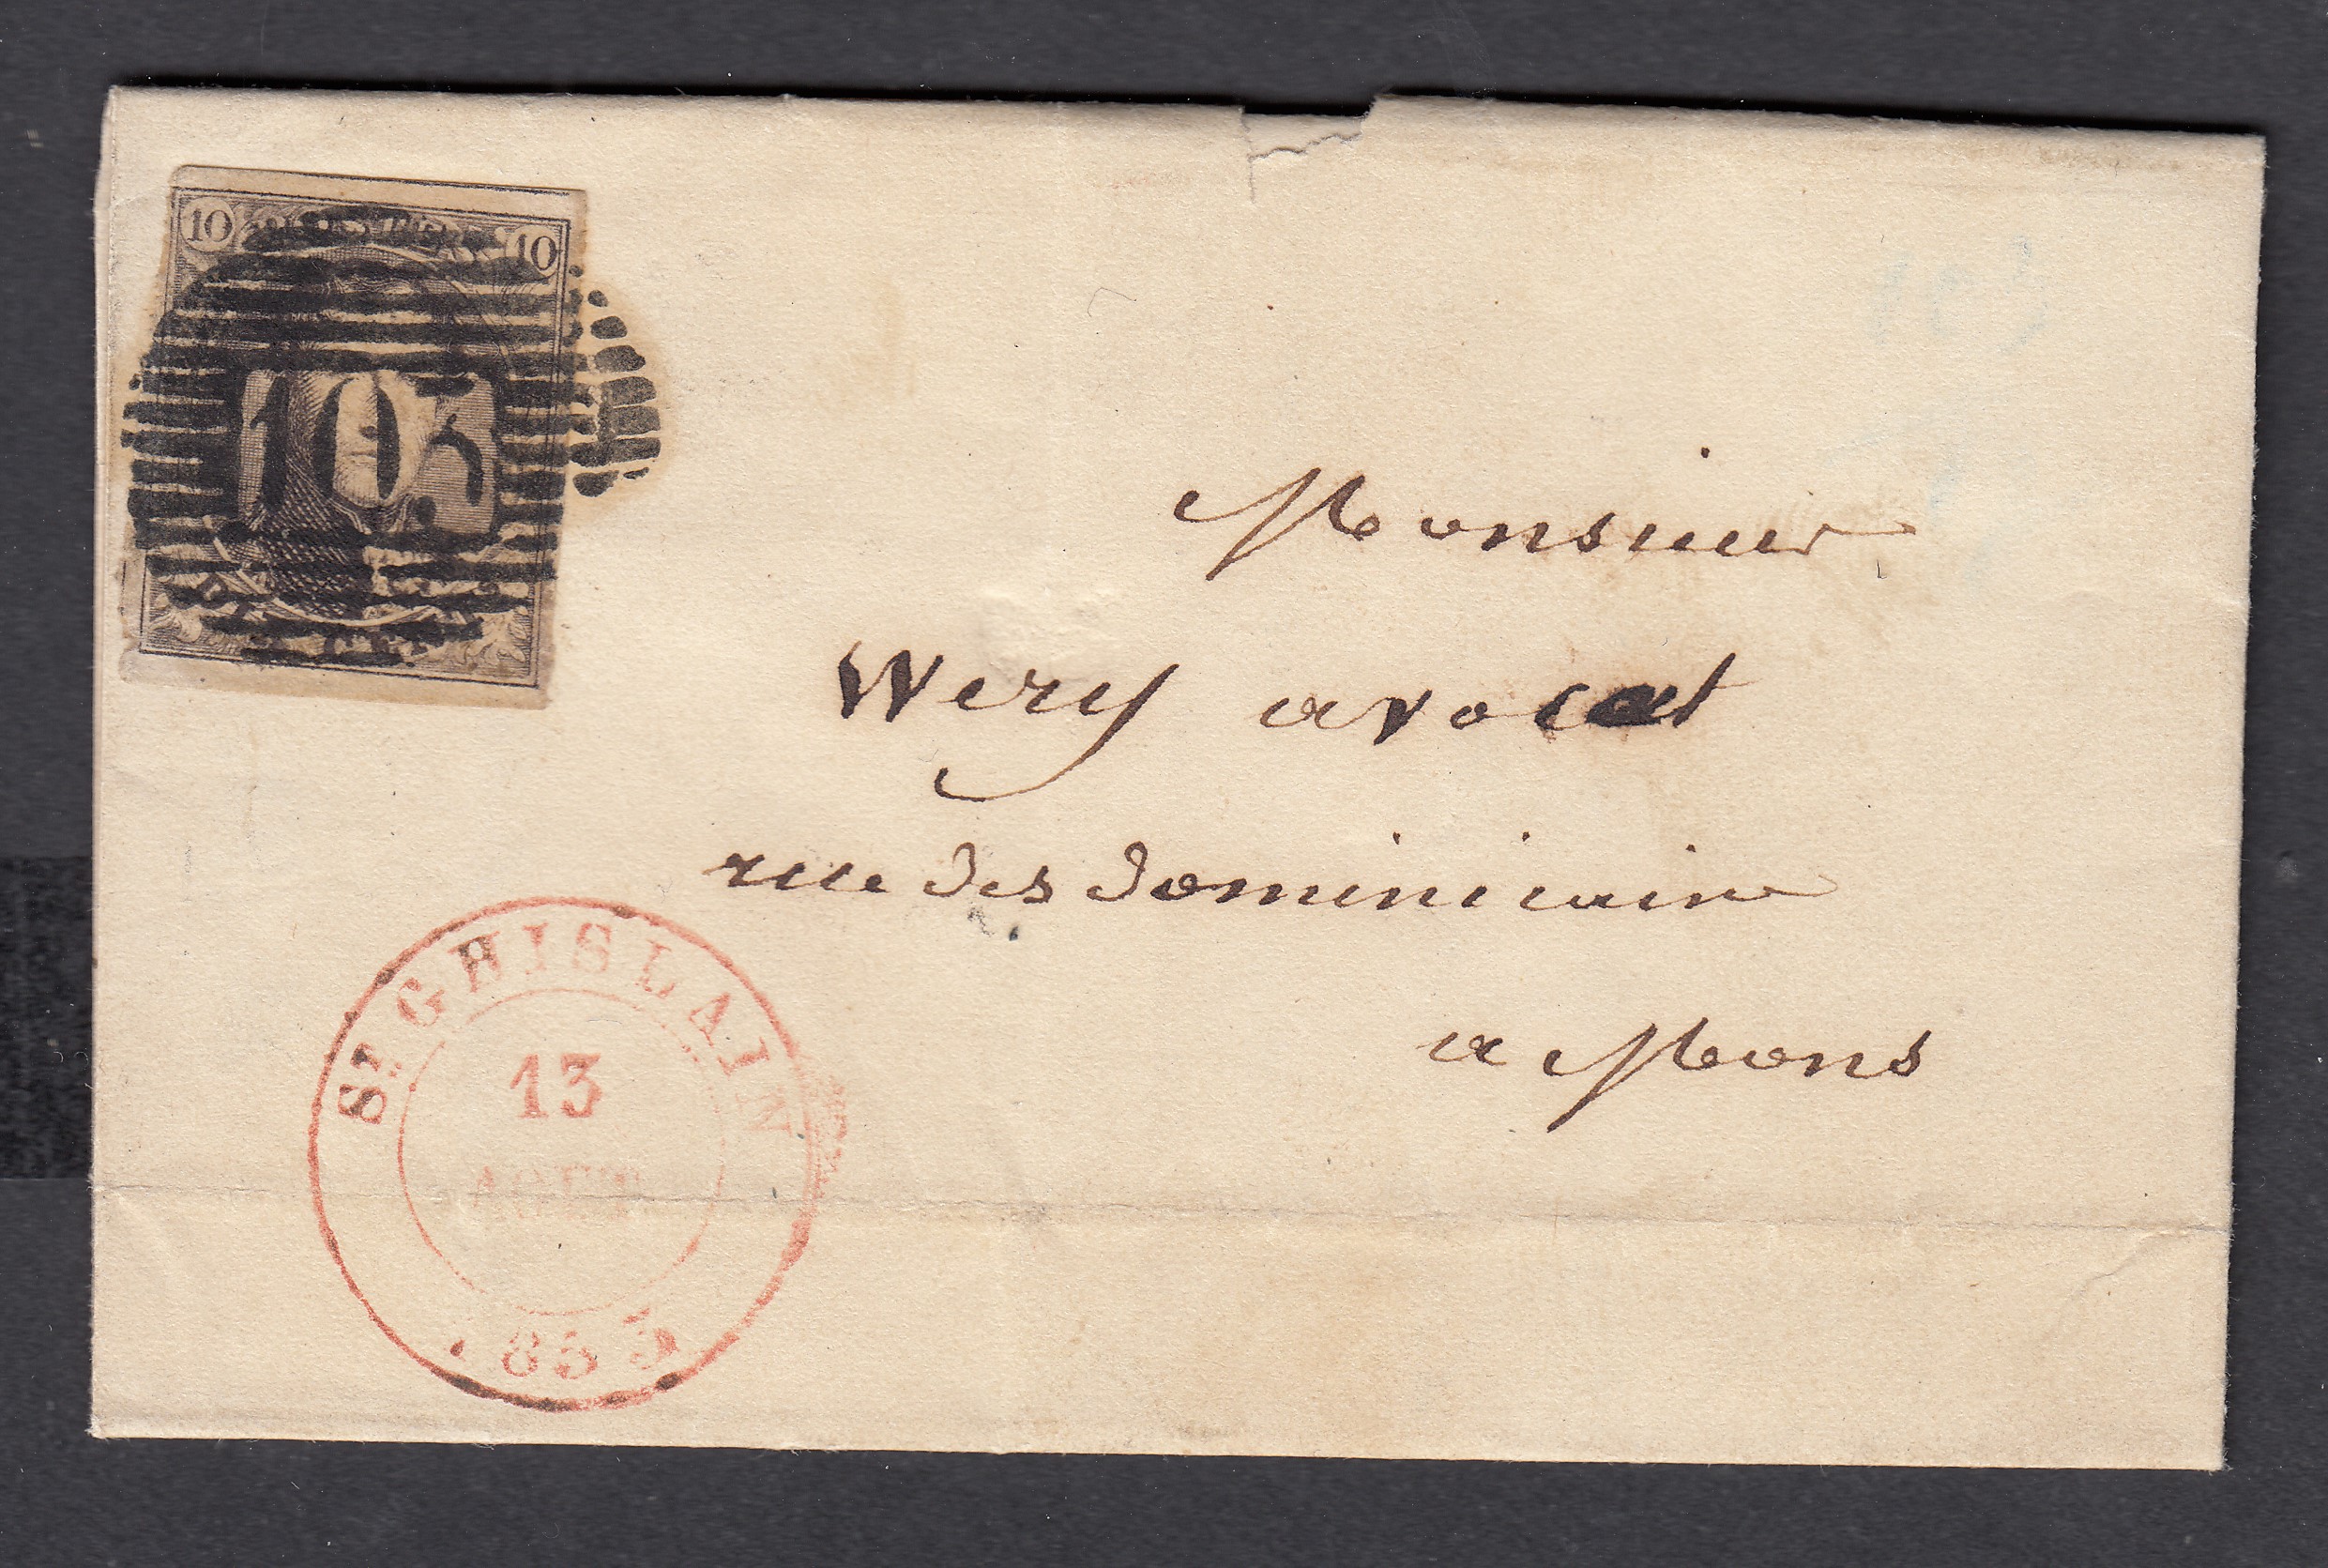 10 10
103
Monsieur
Wery avocat
rue des dominicain
a Mons
St GHISLAIN
13
AOUT
1853